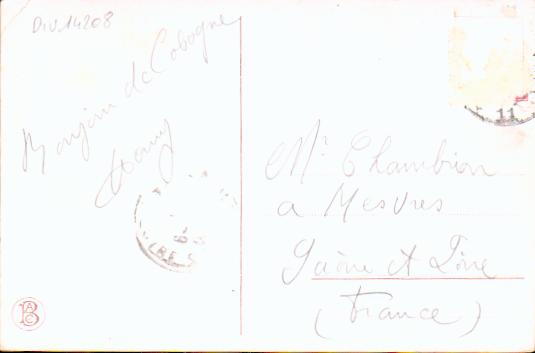 DIV14208
Bonjour de Cologne
Mr. Chambion
a Mesvres
Saône et Loire
(France)
11